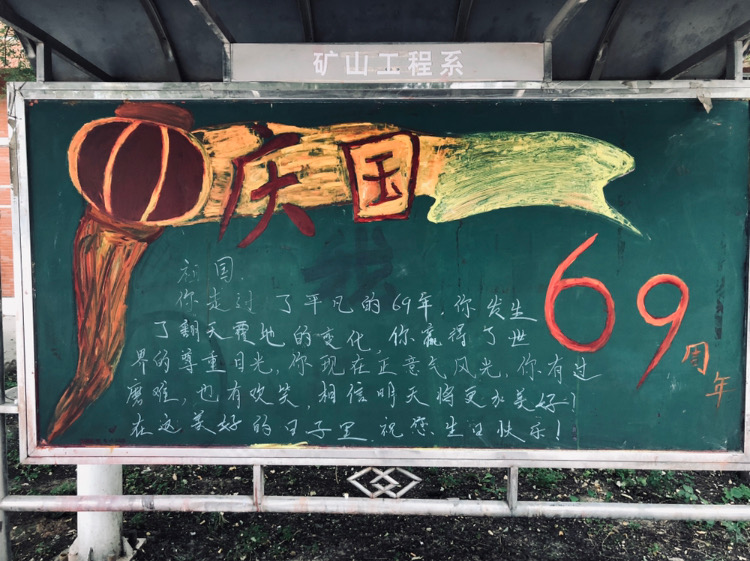 矿山工程系
庆国
69
周年
祖国、
你走过了平凡的69年，你发生
了翻天覆地的变化，你赢得了世
界的尊重目光，你现在正意气风光，你有过
磨难，也有欢笑，相信明天将更加美好！
在这美好的日子里，祝您生日快乐！